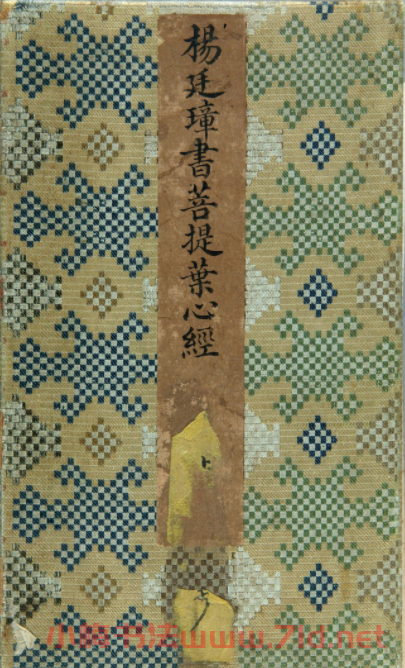 楊廷璋書菩提葉心經
卜
小麻书法www.7ld.net